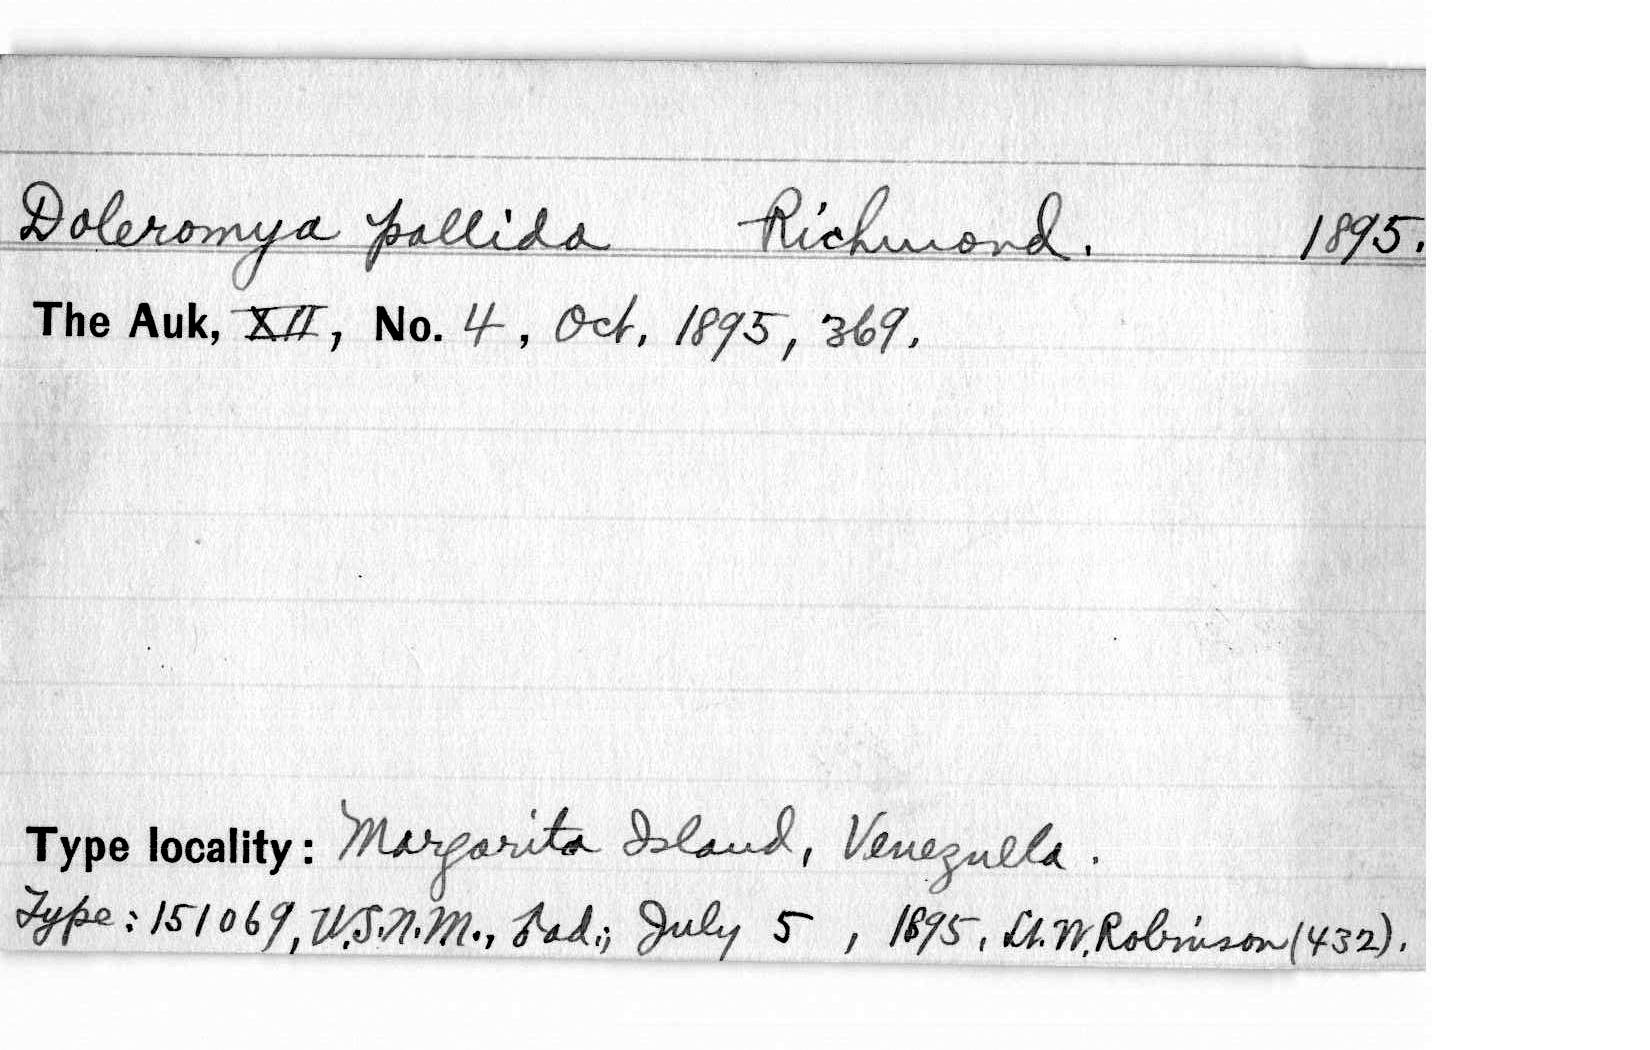 Doleromya pallida Richmond. 1895.
The Auk, XII, No. 4, Oct, 1895, 369.
Type locality: Margarita Island, Venezuela.
Type: 151069, U.S.N.M., ♂ad.; July 5, 1895, Lt. W. Robinson (432).